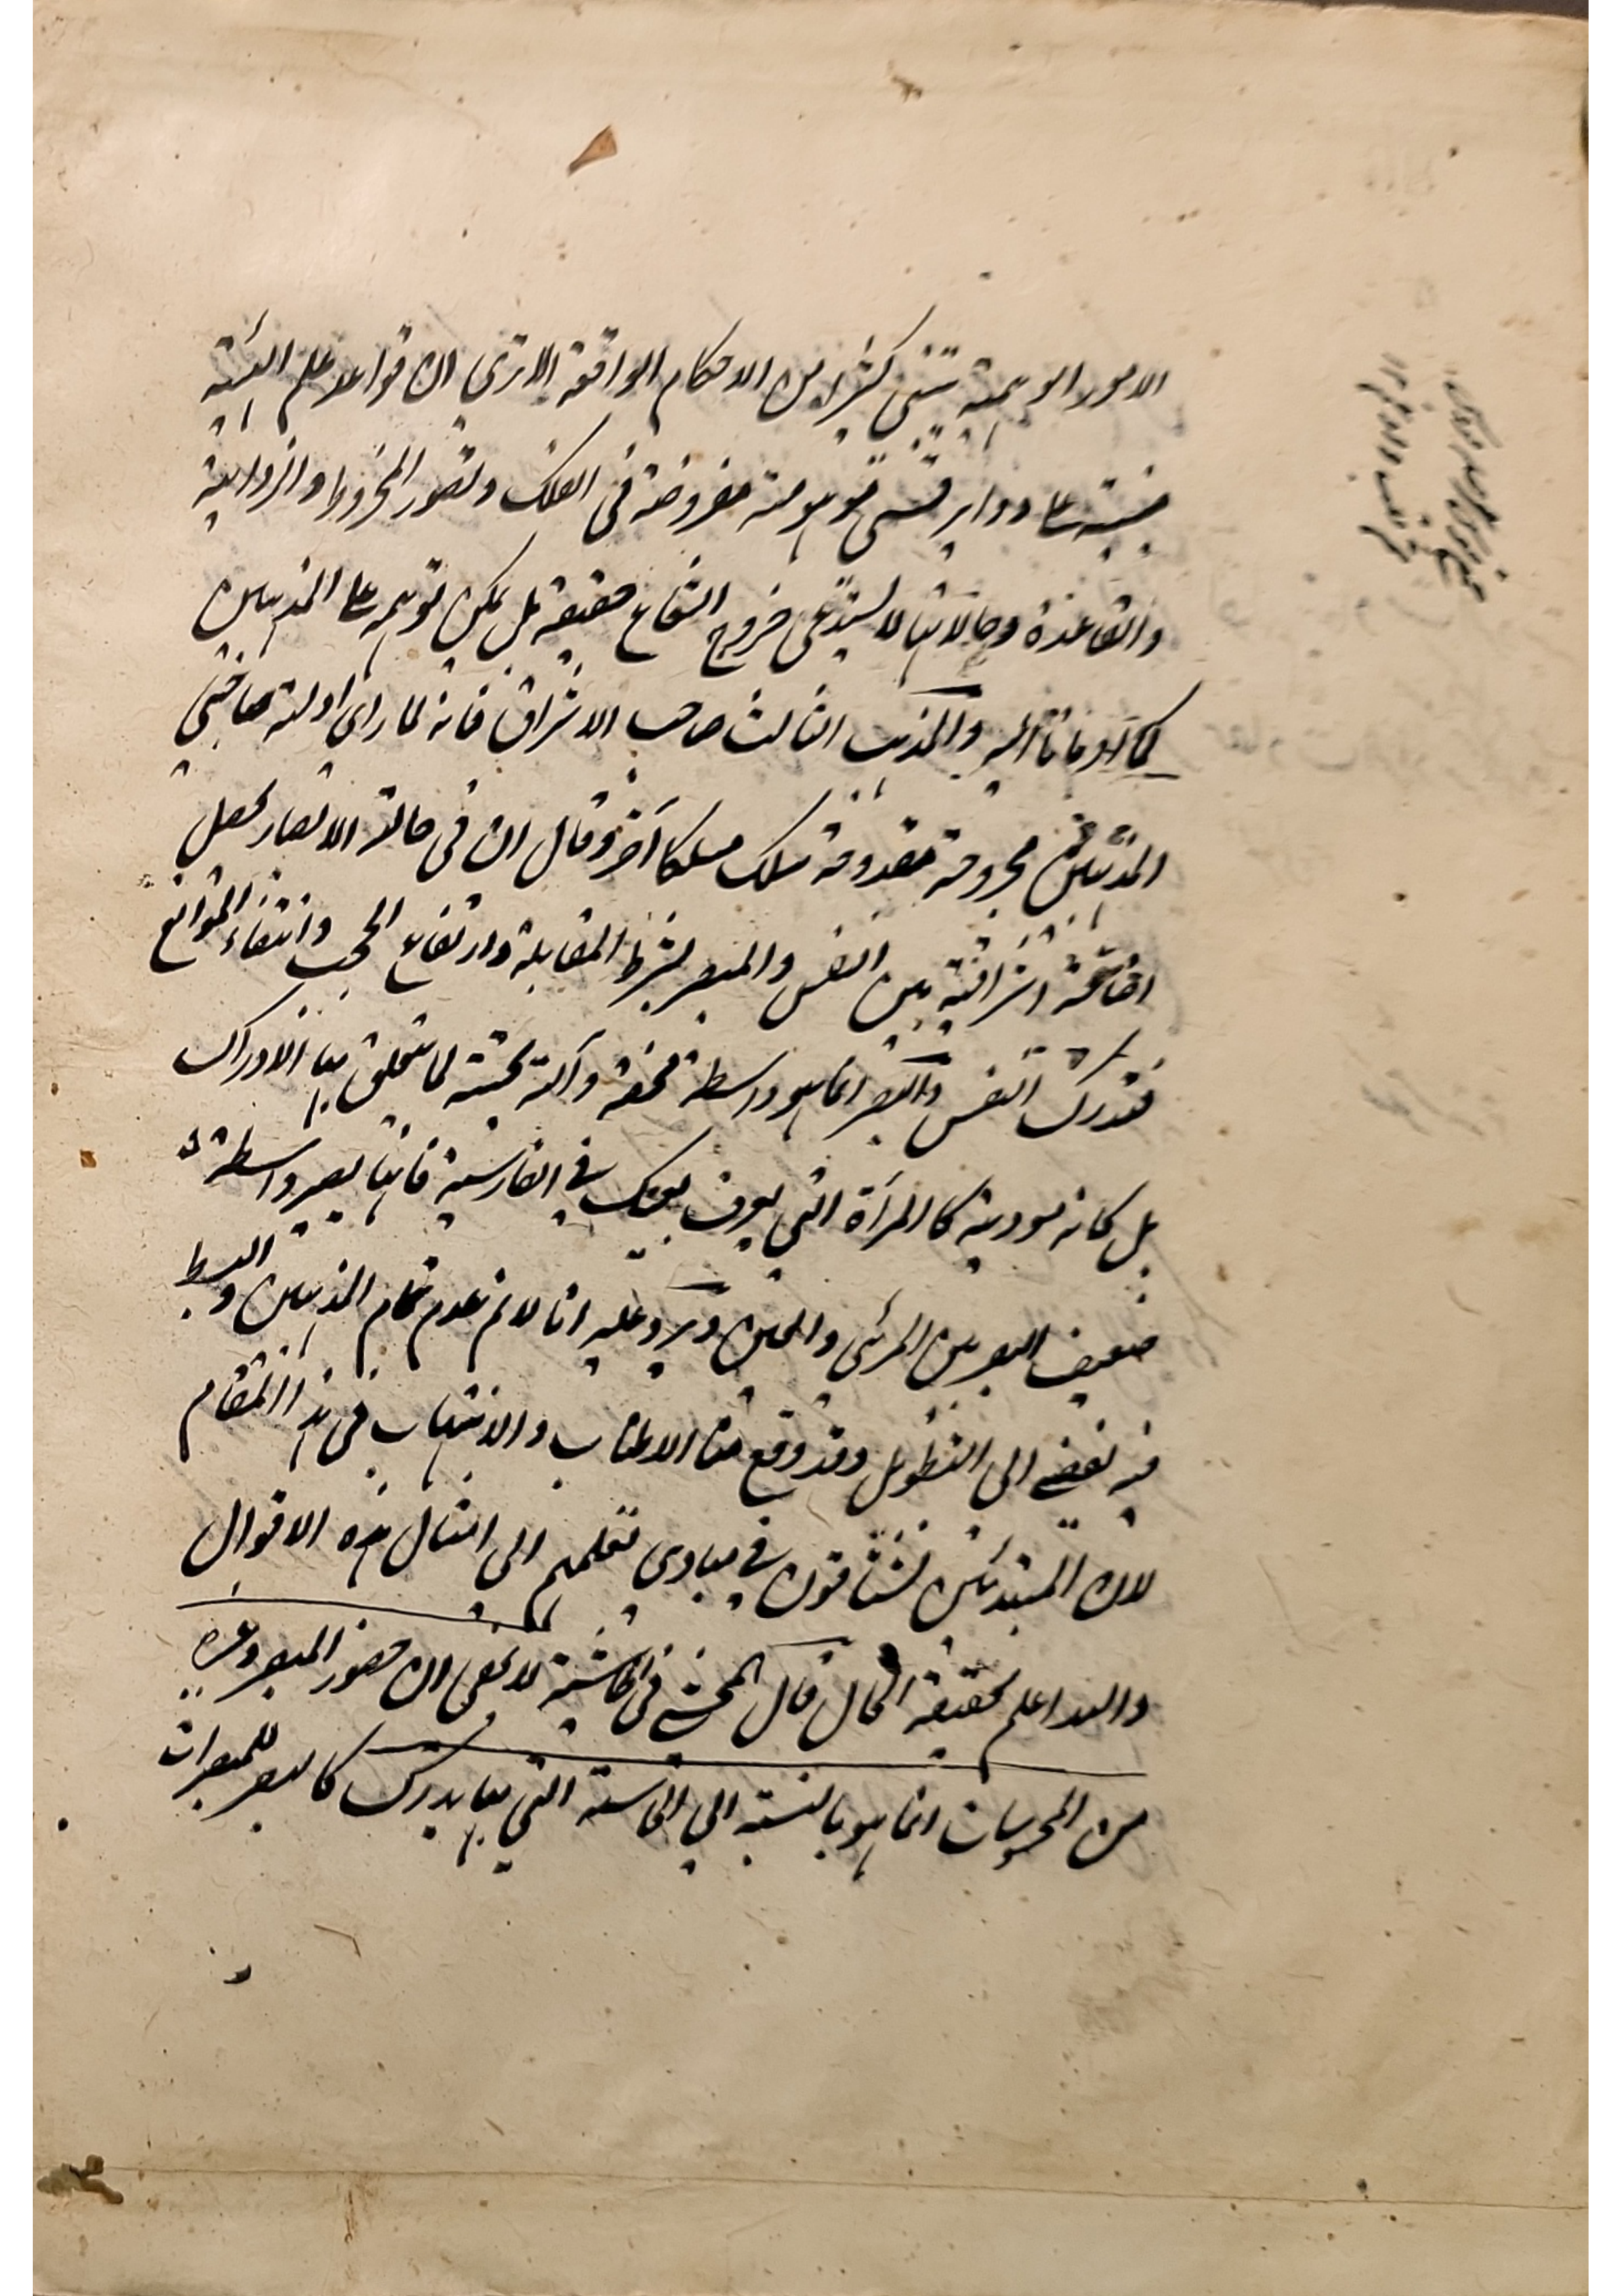 الامور الوهمية تبتنى كثيرا من الاحكام الواقعة الا ترى ان قواعد علم الهيئة
مبنية على دواير قسى موهومة مفروضة فى الفلك وتصور المخروط والزواية
والقاعدة وحالاتها لا يستدعى خروج الشعاع حقيقة بل يمكن توهمه على المذهبين
كما اومانا اليه والمذهب الثالث لصاحب الاشراق فانه لما راى ادلة صاحبى
المذهبين مجروحة مقدوحة سلك مسلكا آخر وقال ان فى حالة الابصار يحصل
اضافة اشراقية بين النفس والمبصر بشرط المقابلة وارتفاع الحجب وانتفاء الموانع
فتدرك النفس والبصر انما هو واسطة محضة وآلة بحتة لما يتعلق بها الادراك
بل كانه مودية كالمرآة التي يعرف بعينك في الفارسية فانها يصير واسطة
ضعيف البصر بين المرئي والعين ويرد عليه انا لا نم عدم تمام المذهبين والبسط
فيه يفضى الى التطويل وقد وقع منا الاطناب والانتهاب فى هذا المقام
لان المبتدئين يشتاقون في مبادى تعلمهم الى امثال هذه الاقوال
والله اعلم بحقيقة الحال قال المحشى فى الحاشية لا يخفى ان حضور المبصر وغيره
من المحسوسات انما هو بالنسبة الي الحاسة التي بها يدرك كالبصر للمبصرات